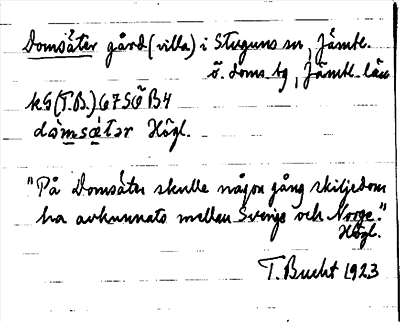 Domsäter gård (villa) i Stuguns sn, Jämtl.
ö. doms. tg, Jämtl. län
kS (T.B.) 67 SÖ B4
dòmsǽtər Högl.
"På Domsäter skulle någon gång skiljedom
ha avkunnats mellan Sverige och Norge."
Högl.
T. Bucht 1923